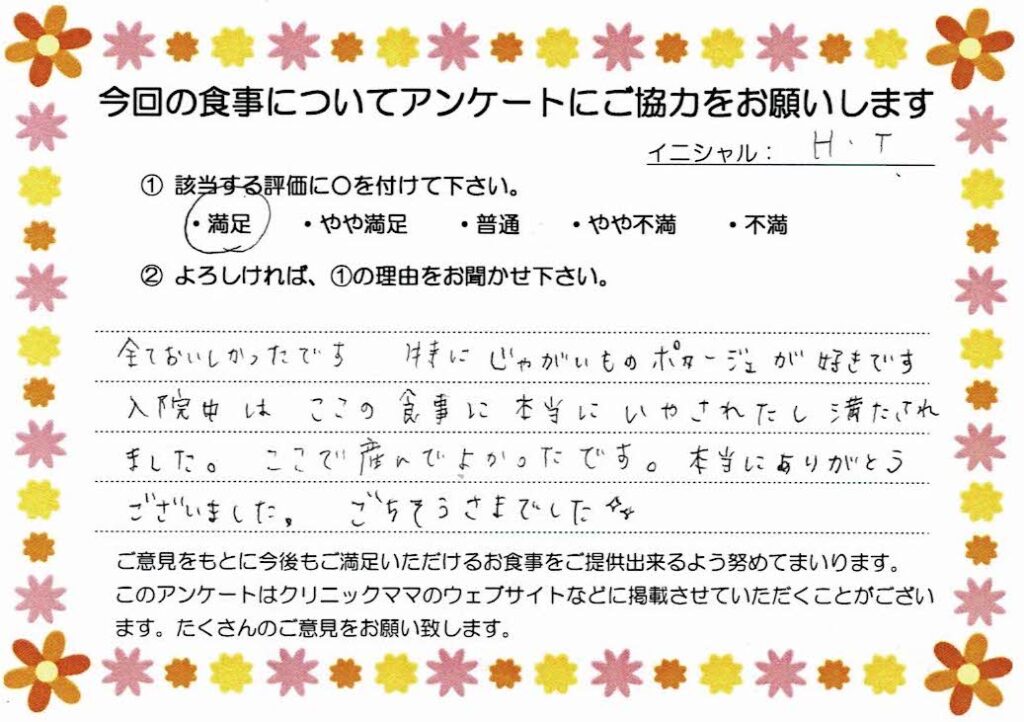 今回の食事についてアンケートにご協力をお願いします
イニシャル： H・T
① 該当する評価に〇を付けて下さい。
・満足 ・やや満足 ・普通 ・やや不満 ・不満
② よろしければ、①の理由をお聞かせ下さい。
全ておいしかったです 特にじゃがいものポタージュが好きです
入院中は ここの食事に本当にいやされたし満たされ
ました。 ここで産んでよかったです。本当にありがとう
ございました。 ごちそうさまでした☆☆
ご意見をもとに今後もご満足いただけるお食事をご提供出来るよう努めてまいります。
このアンケートはクリニックママのウェブサイトなどに掲載させていただくことがござい
ます。たくさんのご意見をお願い致します。